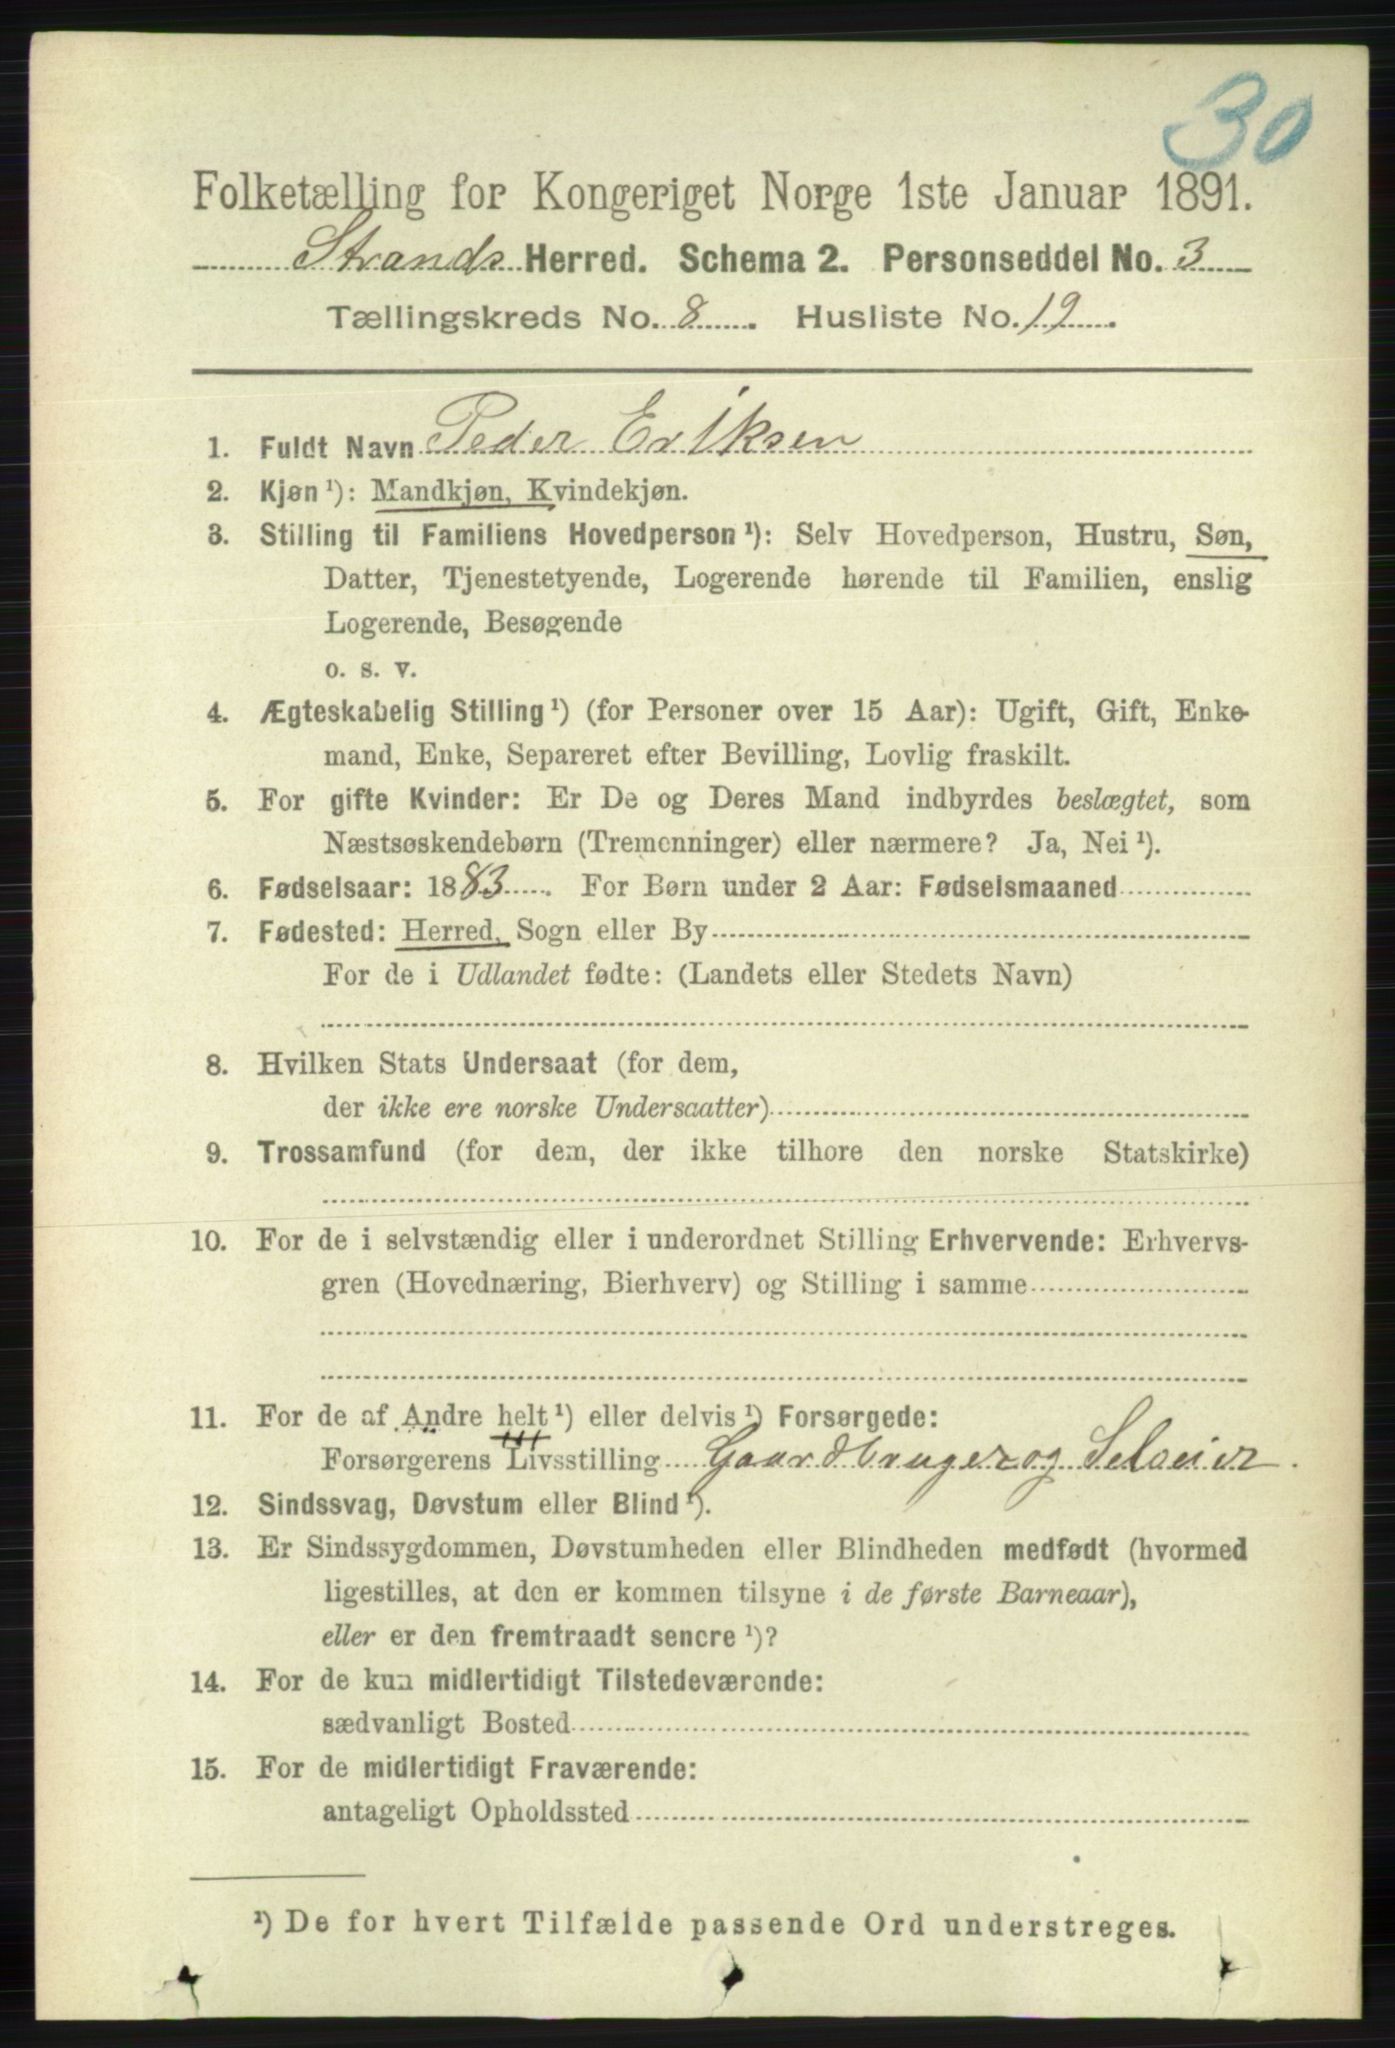 30
Folketælling for Kongeriget Norge 1ste Januar 1891.
Strands Herred. Schema 2. Personseddel No. 3
Tællingskreds No. 8. Husliste No. 19.
1. Fuldt Navn Peder Eriksen
2. Kjøn¹): Mandkjøn, Kvindekjøn.
3. Stilling til Familiens Hovedperson¹): Selv Hovedperson, Hustru, Søn,
Datter, Tjenestetyende, Logerende hørende til Familien, enslig
Logerende, Besøgende
o. s. v.
4. Ægteskabelig Stilling¹) (for Personer over 15 Aar): Ugift, Gift, Enke-
mand, Enke, Separeret efter Bevilling, Lovlig fraskilt.
5. For gifte Kvinder: Er De og Deres Mand indbyrdes beslægtet, som
Næstsøskendebørn (Tremenninger) eller nærmere? Ja, Nei¹).
6. Fødselsaar: 1883. For Børn under 2 Aar: Fødselsmaaned
7. Fødested: Herred, Sogn eller By
For de i Udlandet fødte: (Landets eller Stedets Navn)
8. Hvilken Stats Undersaat (for dem,
der ikke ere norske Undersaatter)
9. Trossamfund (for dem, der ikke tilhøre den norske Statskirke)
10. For de i selvstændig eller i underordnet Stilling Erhvervende: Erhvervs-
gren (Hovednæring, Bierhverv) og Stilling i samme
11. For de af Andre helt¹) eller delvis¹) Forsørgede:
Forsørgerens Livsstilling Gaardbruger og Seleier.
12. Sindssvag, Døvstum eller Blind¹).
13. Er Sindssygdommen, Døvstumheden eller Blindheden medfødt (hvormed
ligestilles, at den er kommen tilsyne i de første Barneaar),
eller er den fremtraadt senere¹)?
14. For de kun midlertidigt Tilstedeværende:
sædvanligt Bosted
15. For de midlertidigt Fraværende:
antageligt Opholdssted
¹) De for hvert Tilfælde passende Ord understreges.